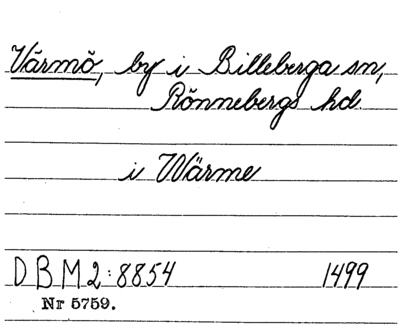 Värmö, by i Billeberga sn,
Rönnebergs hd.
i Wärme
DBM2:8854 1499
Nr 5759.